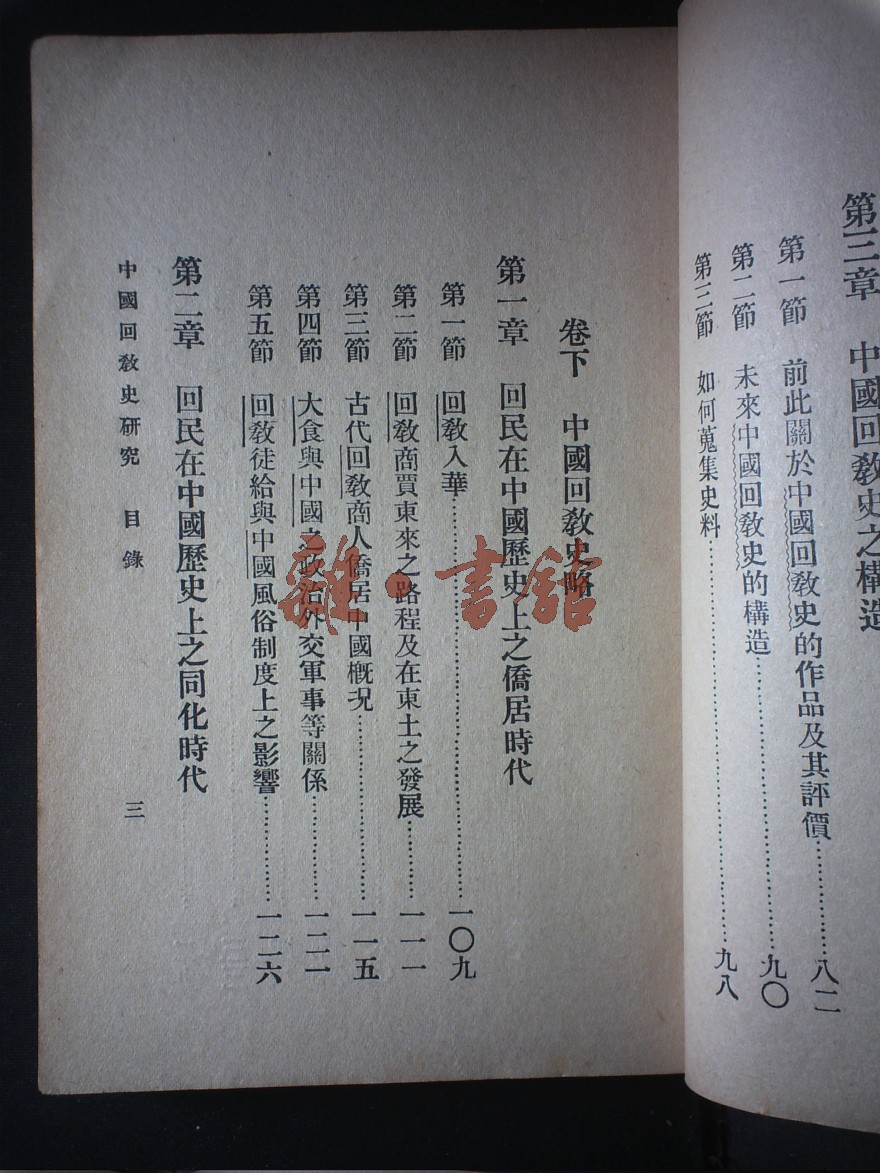 第三章　中國回敎史之構造
第一節　前此關於中國回敎史的作品及其評價…………八二
第二節　未來中國回敎史的構造…………九〇
第三節　如何蒐集史料…………九八
卷下　中國回敎史略
第一章　回民在中國歷史上之僑居時代
第一節　回敎入華…………一〇九
第二節　回敎商賈東來之路程及在東土之發展…………一一一
第三節　古代回敎商人僑居中國槪況…………一一五
第四節　大食與中國之政治外交軍事等關係…………一二一
第五節　回敎徒給與中國風俗制度上之影響…………一二六
第二章　回民在中國歷史上之同化時代
中國回敎史研究　目錄　三
雜·書館